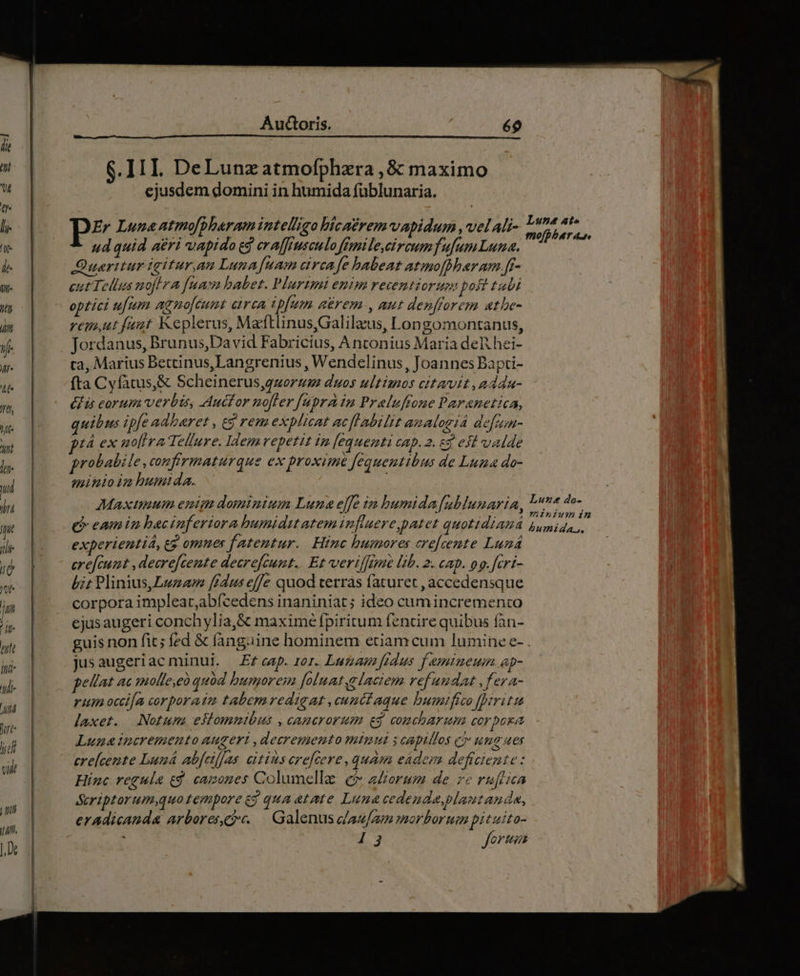 Auctoris. 69
§. III. De Lunæ atmosphæra, & maximo
ejusdem domini in humida sublunaria.
PEr Lunæ atmosphæram intelligo hîc aërem vapidum, vel ali-
ud quid aëri vapido & crassiusculo simile, circumfusum Lunæ.
Lunæ at-
mosphæra.
Quæritur igitur, an Luna suam circa se habeat atmosphæram, si-
cut Tellus nostra suam habet. Plurimi enim recentiorum post tubi
optici usum agnoscunt circa ipsam aërem, aut densiorem æthe-
rem, ut sunt Keplerus, Mæstlinus, Galilæus, Longomontanus,
Jordanus, Brunus, David Fabricius, Antonius Maria de Rhei-
ta, Marius Bettinus, Langrenius, Wendelinus, Joannes Bapti-
sta Cysatus, & Scheinerus, quorum duos ultimos citavit, addu-
ctis eorum verbis, Auctor noster suprà in Prælusione Parænetica,
quibus ipse adhæret, & rem explicat ac stabilit analogiâ desum-
ptâ ex nostra Tellure. Idem repetit in sequenti cap. 2. & est valde
probabile, confirmaturque ex proximè sequentibus de Lunæ do-
minio in humida.
Maximum enim dominium Lunæ esse in humida sublunaria,
& eam in hæc inferiora humiditatem influere, patet quotidianâ
Lunæ do-
minium in
humida.
experientiâ, & omnes fatentur. Hinc humores crescente Lunâ
crescunt, decrescente decrescunt. Et verissimè lib. 2. cap. 99. scri-
bit Plinius, Lunam sidus esse quod terras saturet, accedensque
corpora impleat, abscedens inaniniat; ideo cum incremento
ejus augeri conchylia, & maximè spiritum sentire quibus san-
guis non sit; sed & sanguine hominem etiam cum lumine e-
jus augeri ac minui. Et cap. 101. Lunam sidus femineum ap-
pellat ac molle, eò quòd humorem solvat, glaciem refundat, fera-
rum occisa corpora in tabem redigat, cunctaque humifico spiritu
laxet. Notum est omnibus, cancrorum & concharum corpora
Lunæ incremento augeri, decremento minui; capillos & ungues
crescente Lunâ abscissas citiùs crescere, quàm eadem deficiente:
Hinc regulæ & canones Columellæ & aliorum de re rustica
Scriptorum, quo tempore & qua ætate Lunæ cædendæ, plantandæ,
eradicandæ arbores, &c. Galenus clausam morborum pituito-
I 3 sorum